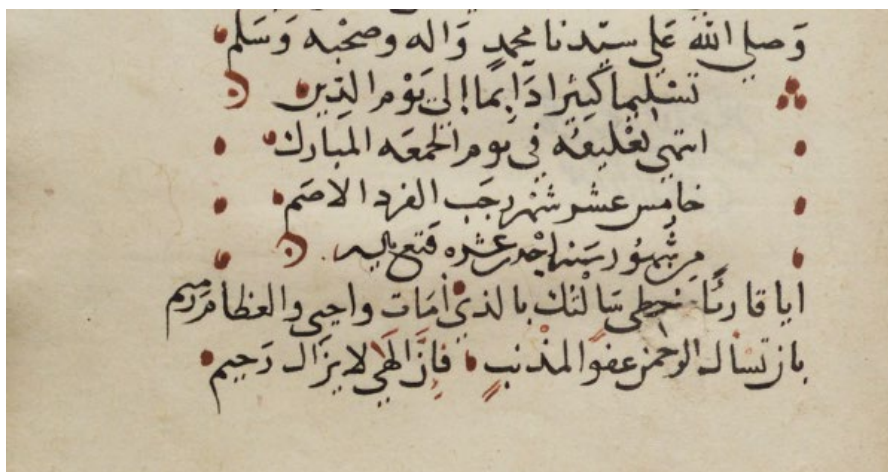 وَصلي الله عَلي سيّدنا محمدٍ وَاله وصحْبه وَسَلم
تسْليما كثيرا دَايما إلي يَوْم الدّين
انتهي تعْليقه في يوم الجمعَه المبَارك
خامس عشر شهر رجَب الفرد الاصَم
من شهور سَنة احْدى عشره
ايا قارئا خطي سَالتك بالذي أمَات واحيى والعظام رميم
بان تسأل الرحمن عفوا لمذنب فانَّ الهي لا يزَال رَحيم